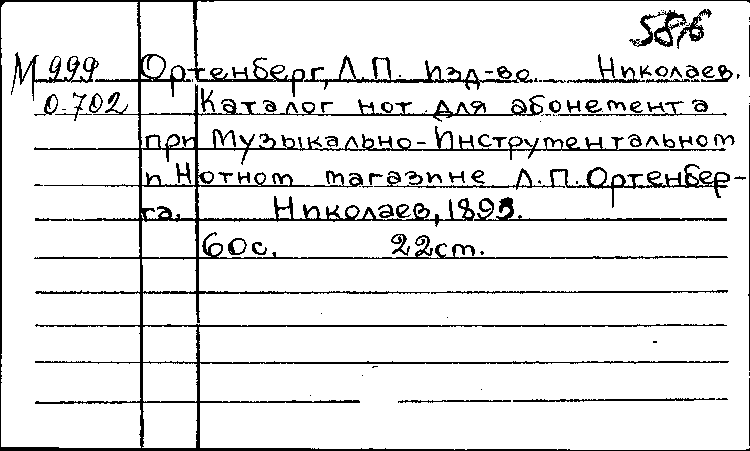 586
М 999 Ортенберг, Л.П. Изд-во. Николаев.
О-702 Каталог нот для абонемента
при Музыкально-Инструментальном
и Нотном магазине Л.П.Ортенбер-
га. Николаев, 1893.
60с. 22см.